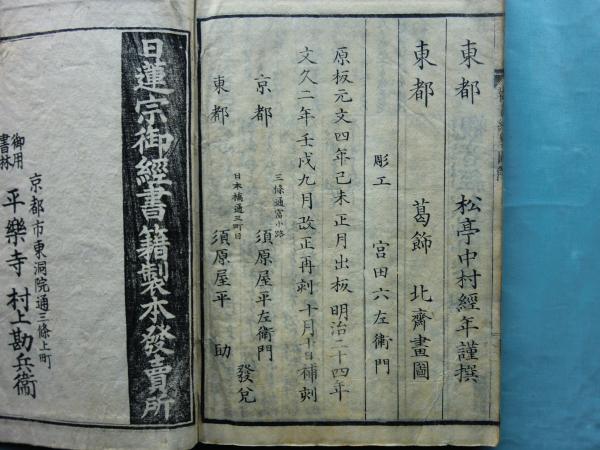 東都 松亭中村經年謹撰
東都 葛飾 北齋畫圖
彫工 宮田六左衛門
原板元文四年己未正月出板 明治二十四年
文久二年壬戌九月改正再刻 十月十日補刻
京都 三條通富小路 須原屋平左衛門
東都 日本橋通三町目 須原屋平助
發兌
日蓮宗御經書籍製本發賣所
京都市東洞院通三條上町
御用書林 平樂寺 村上勘兵衞